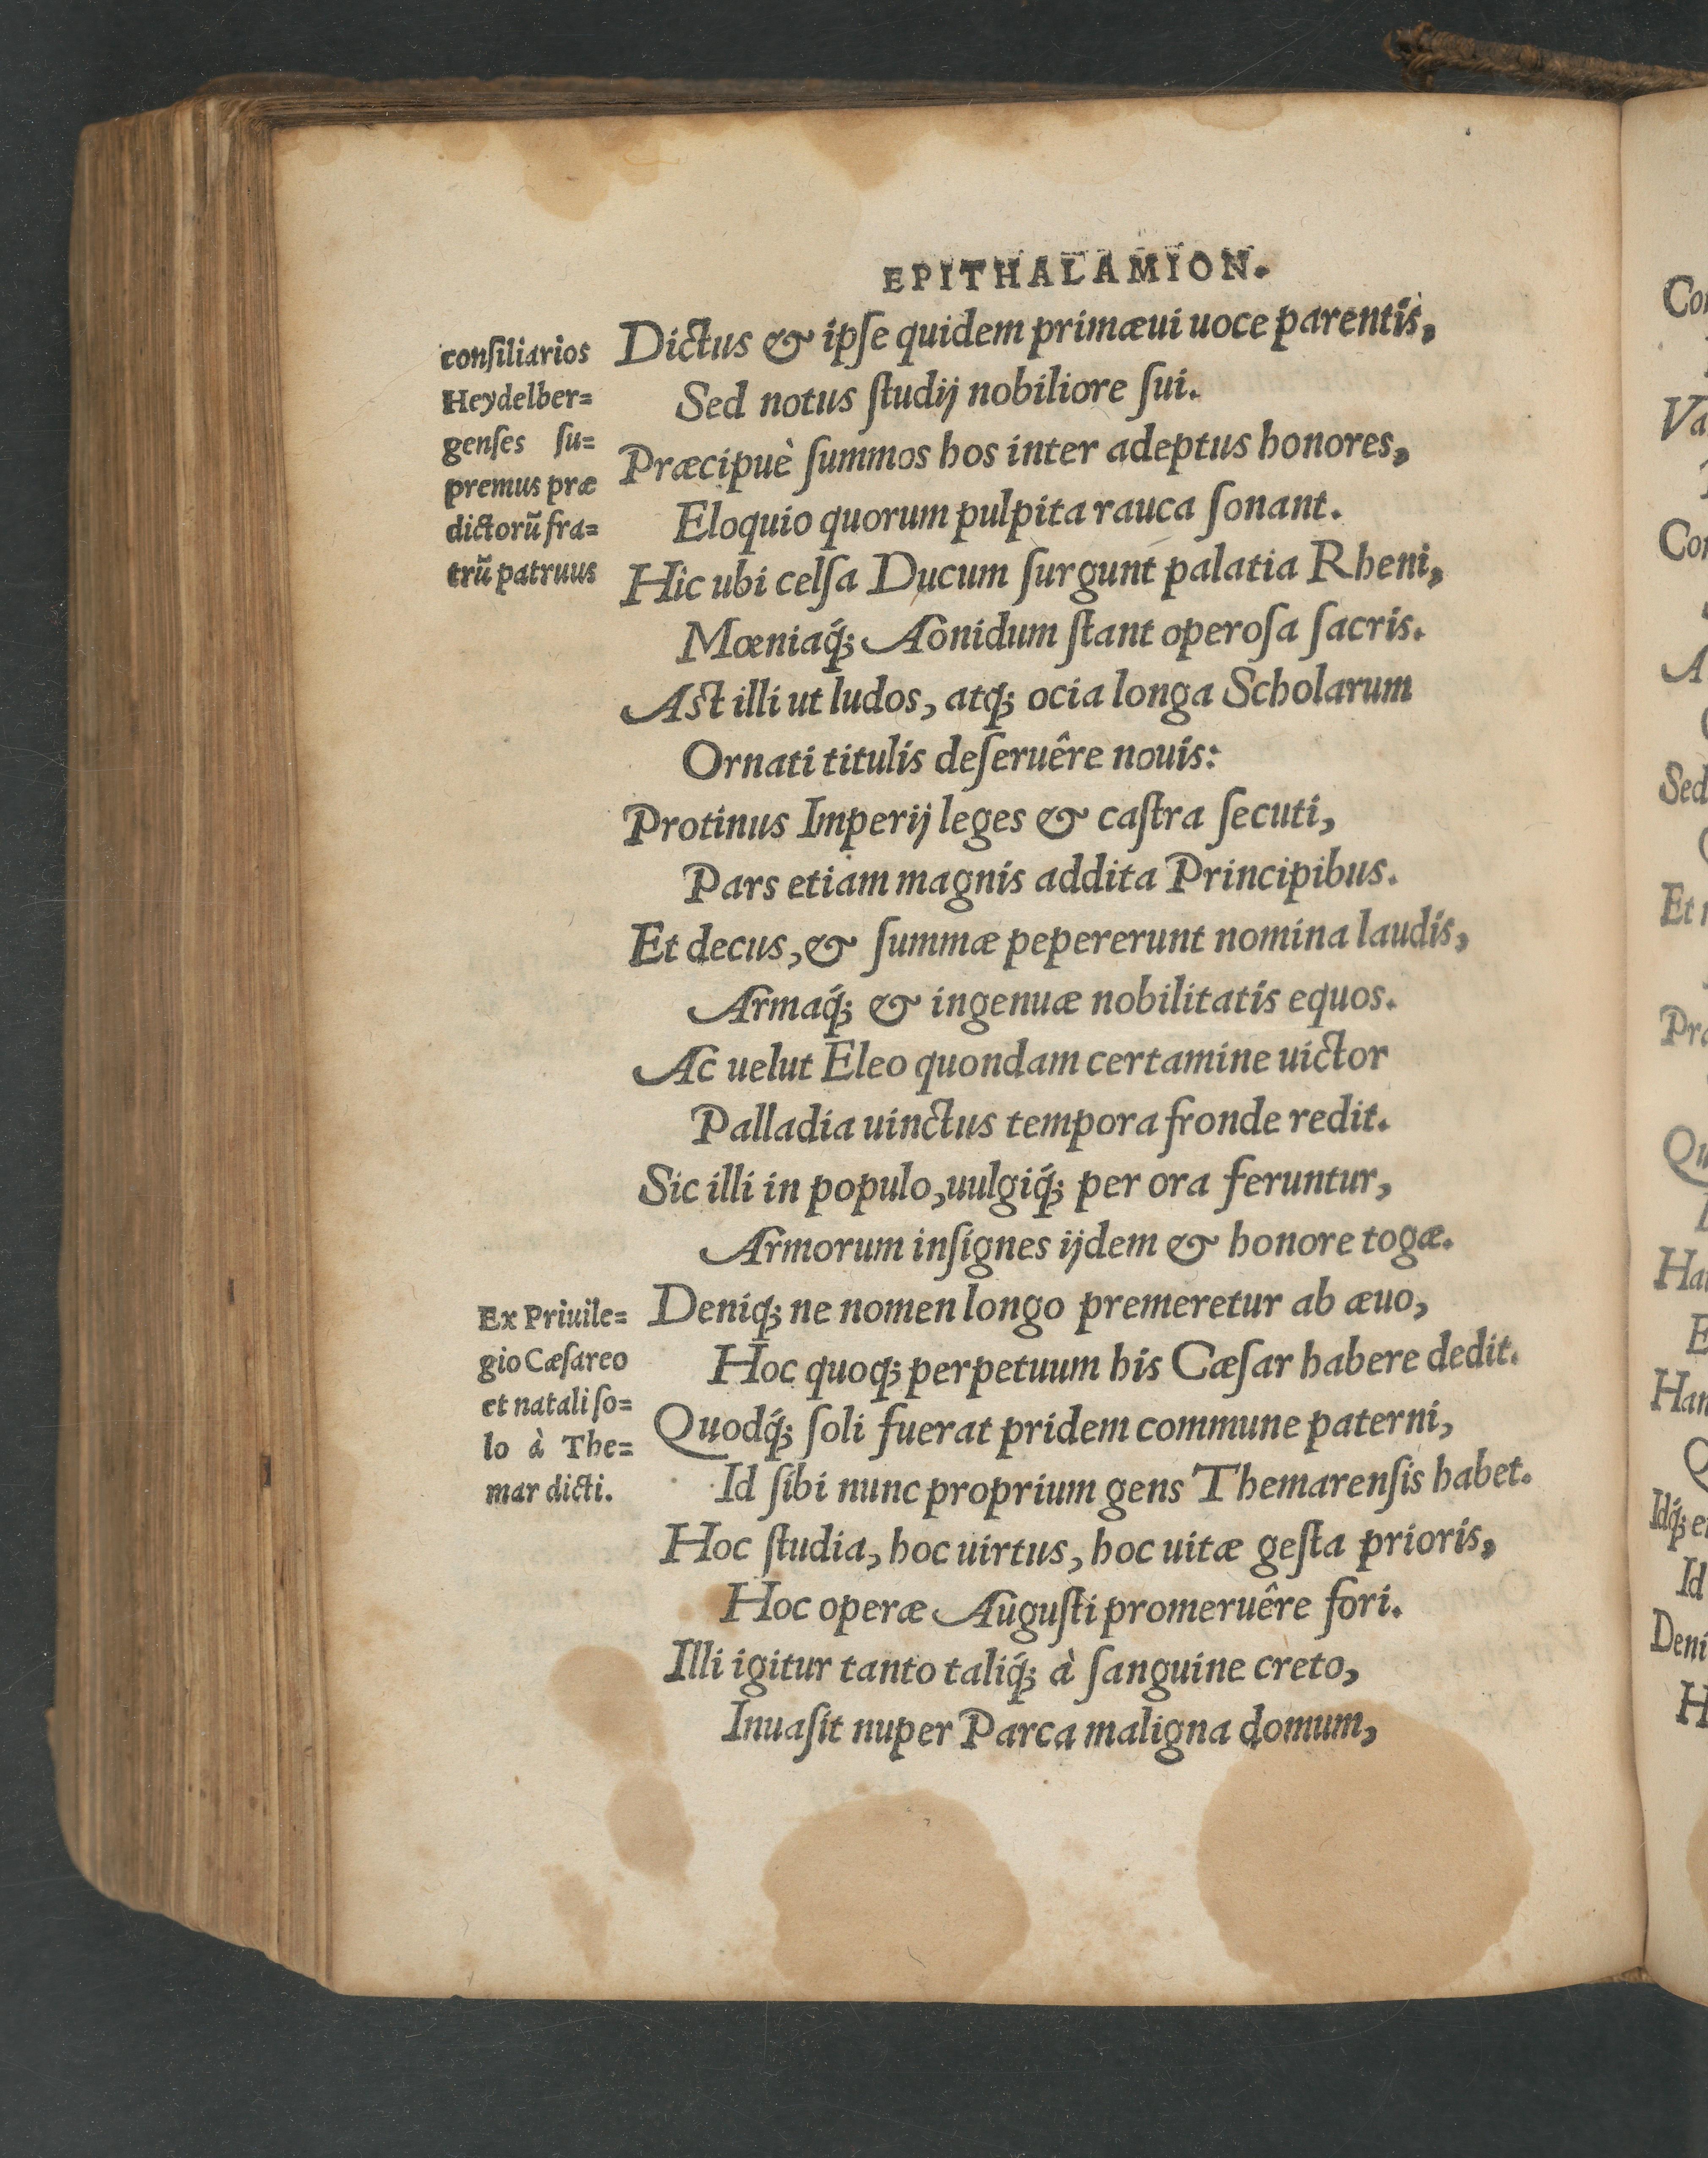 EPITHALAMION.
consiliarios
Heydelber=
genses ſu=
premus præ
dictorũ fra=
trũ patruus
Dictus & ipſe quidem primæui uoce parentis,
Sed notus ſtudij nobiliore ſui.
Præcipuè ſummos hos inter adeptus honores,
Eloquio quorum pulpita rauca ſonant.
Hîc ubi celſa Ducum ſurgunt palatia Rheni,
Mœniaq́; Aonidum ſtant operoſa ſacris.
Aſt illi ut ludos, atq; ocia longa Scholarum
Ornati titulis deſeruêre nouis:
Protinus Imperij leges & caſtra ſecuti,
Pars etiam magnis addita Principibus.
Et decus, & ſummæ pepererunt nomina laudis,
Armaq́; & ingenuæ nobilitatis equos.
Ac uelut Eleo quondam certamine uictor
Palladia uinctus tempora fronde redit.
Sic illi in populo, uulgiq́; per ora feruntur,
Armorum inſignes ijdem & honore togæ.
Ex Priuile=
gio Cæſareo
et natali ſo=
lo à The=
mar dicti.
Deniq; ne nomen longo premeretur ab æuo,
Hoc quoq; perpetuum his Cæſar habere dedit.
Quodq́; ſoli fuerat pridem commune paterni,
Id ſibi nunc proprium gens Themarenſis habet.
Hoc ſtudia, hoc uirtus, hoc uitæ geſta prioris,
Hoc operæ Auguſti promeruêre fori.
Illi igitur tanto taliq́; à ſanguine creto,
Inuaſit nuper Parca maligna domum,